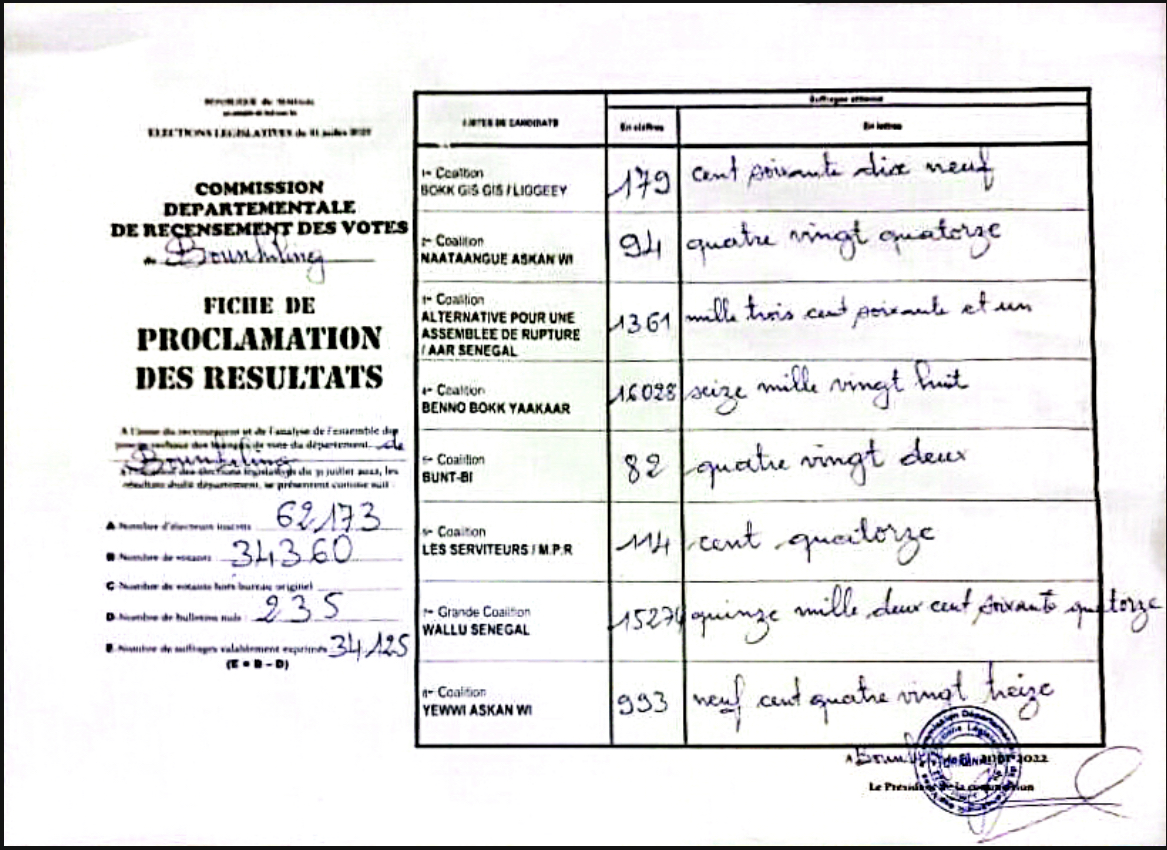 REPUBLIQUE du SENEGAL
ELECTIONS LEGISLATIVES du 31 juillet 2022
COMMISSION
DEPARTEMENTALE
DE RECENSEMENT DES VOTES
de Bounkiling
FICHE DE
PROCLAMATION
DES RESULTATS
A l'issue du recensement et de l'analyse de l'ensemble des
procès verbaux des bureaux de vote du département de
Bounkiling
des élections législatives du 31 juillet 2022, les
résultats dudit département, se présentent comme suit :
A Nombre d'électeurs inscrits : 62173
B Nombre de votants : 34360
C Nombre de votants hors bureau originel
D Nombre de bulletins nuls : 235
E Nombre de suffrages valablement exprimés 34125
(E = B – D)
LISTES DE CANDIDATS
Suffrages obtenus
En chiffres En lettres
1re Coalition
BOKK GIS GIS / LIGGEEY
179 cent soixante dix neuf
2e Coalition
NAATAANGUE ASKAN WI
94 quatre vingt quatorze
Coalition
ALTERNATIVE POUR UNE
ASSEMBLEE DE RUPTURE
/ AAR SENEGAL
1361 mille trois cent soixante et un
4e Coalition
BENNO BOKK YAAKAAR
16028 seize mille vingt huit
Coalition
BUNT-BI
82 quatre vingt deux
Coalition
LES SERVITEURS / M.P.R
114 cent quatorze
7e Grande Coalition
WALLU SENEGAL
15274 quinze mille deux cent soixante quatorze
Coalition
YEWWI ASKAN WI
993 neuf cent quatre vingt treize
A 2022
Le Président de la commission